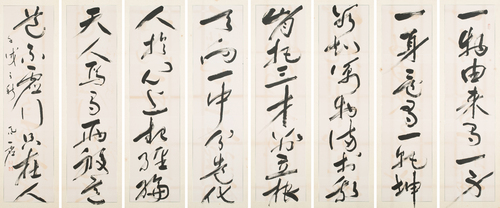 一物由来有一身
一身還有一乾坤
能知萬物備於我
肯把三才別立根
天向一中分造化
人於心上起經綸
天人焉有兩般義
道不虛行只在人